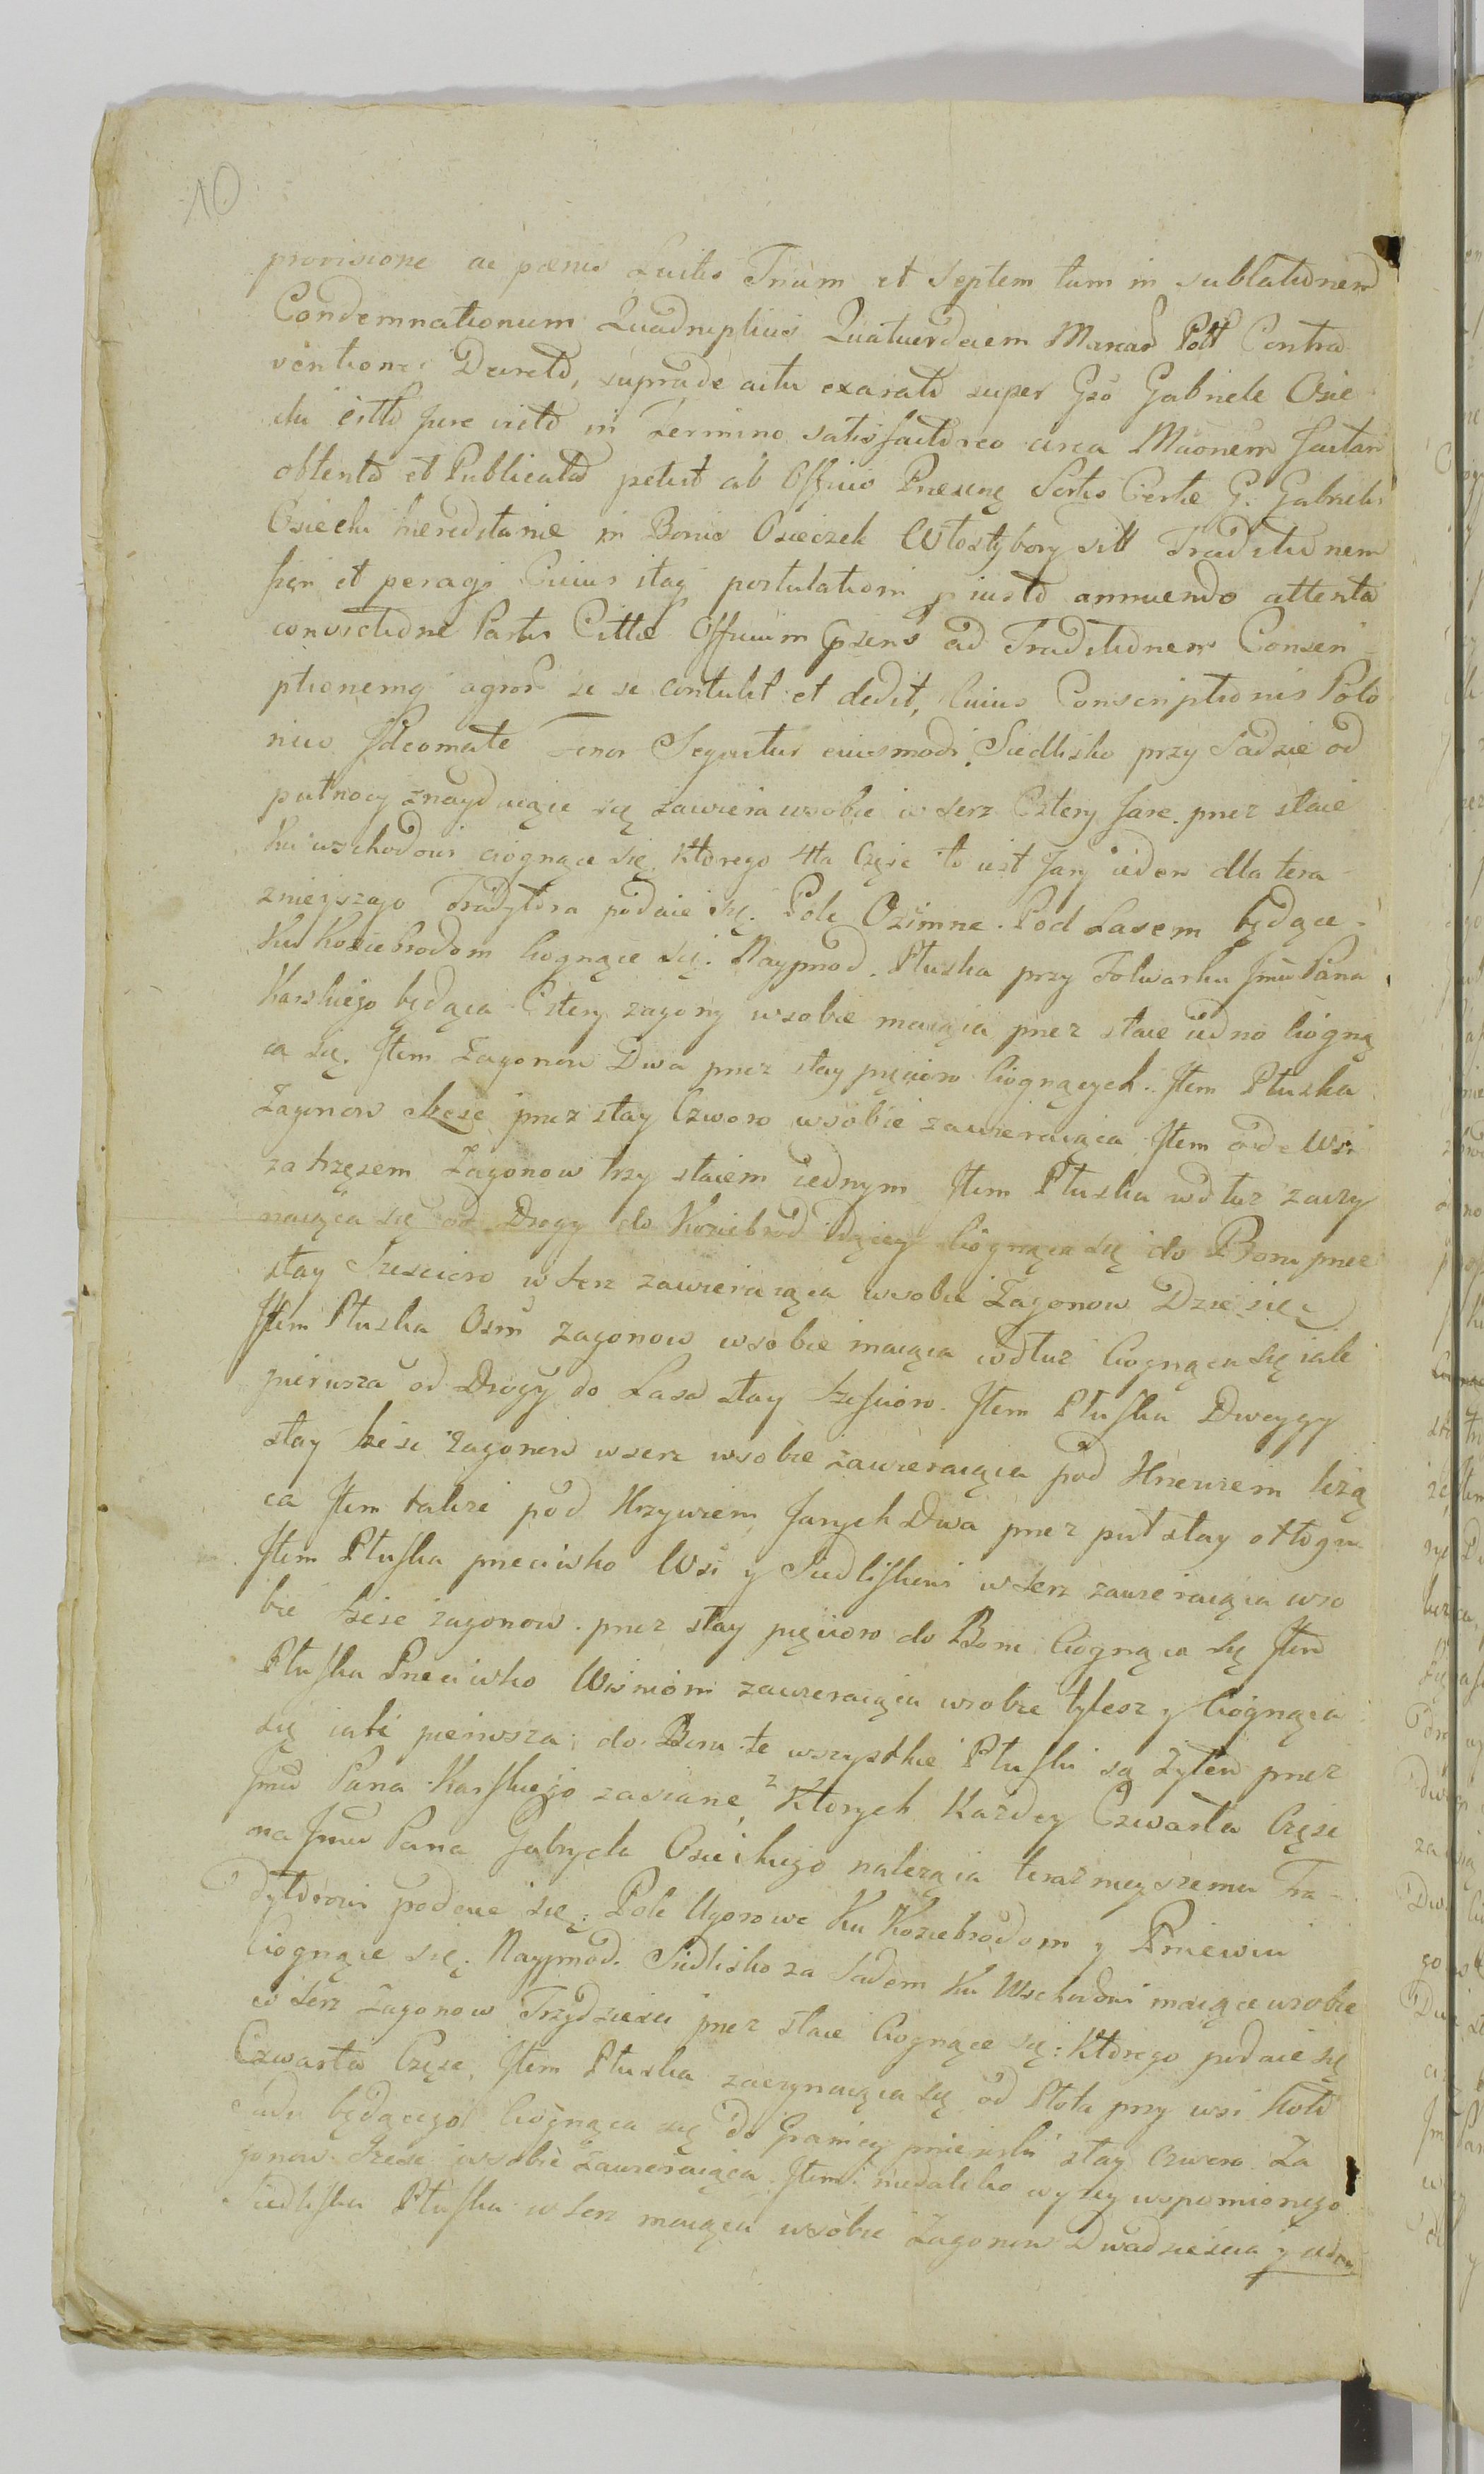 10
provisione ac pœnis Luitis Trium et Septem tum in sublationem
Condemnationum Quadruplicis Quatuordecim Marcar Poll Contra
ventione Decreto, supradē actu exarato super Gso Gabriele Osie
cki citto jure victo in Termino satisfactorio circa Maonem factam
obtento et Publicato petiit ab Officio Præseng Sortis Certæ G. Gabrielis
Osiecki hæreditariæ in Bonis Osieczek Włostybory sitt Traditionem
fieri et peragi Cuius itaq postulationi justo annuendo attenta
convictione Partis Cittæ Officium Psens ad Traditionem Conscri-
ptionemq agror se se contulit et dedit, Cuius Conscriptionis Polo
nico Jdeomate Tenor Sequitur eiusmodi. Siedlisko przy Sadzie od
pułnocy znayduiące się zawiera wsobie w szerz Cztery Jare. przez staie
ku wschodowi ciognące się. którego 4ta Częsc to iest Jary ieden dla tera-
znieyszego Tradytora podaie się. Pole Ozimne. Pod Lasem będące
Ku Koziebrodom Ciognące się. Nayprzod. Płuska przy Folwarku Jmci Pana
Karskiego będąca Cztery zagony wsobie maiąca przez staie iedno Ciogną
ca się. Jtem Zagonow Dwa przez stay pięcioro Ciognących. Jtem Płuska
Zagonow szesc przez stay Czworo wsobie zawieraiąca Jtem ode Wsi
za trzęsem Zagonow trzy staiem iednym Jtem Płuska wdłuz zaczy
naiąca się od Drogy do Koziebrod idącey Ciognąca się do Boru przez
stay Szescioro w szerz zawieraiąca wsobie Zagonow Dziesięc
Jtem Płuska Osm zagonow wsobie maiąca wdłuz Ciognąca się iak
pierwsza od Drogy do Lasa stay szescioro. Jtem Pluska Dwoygy
stay szesc zagonow wszerz wsobie zawieraiąca pod Krzewiem leżą
ca Jtem takze pod Krzywiem Jarych Dwa przez puł stay otłogu
Jtem Pluska przeciwko Wsi y Siedliskiem w szerz zawieraiąca wso
bie szesc zagonow. przez stay pięcioro do Boru Ciognąca się Jtem
Pluska Przeciwko Wisniom zawieraiąca wsobie tylesz y Ciognąca
się iak pierwsza; do Boru te wszystkie Pluski są żytem przez
Jmci Pana Karskiego zasiane, z Których Kazdey Czwarta Częsc
na Jmci Pana Gabryela Osieckiego naleząca teraznieyszemu Tra-
dytorowi podaie się. Pole Ugorowe Ku Koziebrodom y Pniewiu
Ciognące się. Nayprzod. Siedlisko za Sadem Ku Wschodowi maiące wsobie
w szerz zagonow Trzydziesci przez staie Ciognące się: Którego podaie się
Czwarta Częsc, Jtem Płuska zaczynaiąca się od Płota przy wsi koło
Sadu będącego Ciognąca się do Granicy pniewski stay czworo Za
gonow Szesc wsobie zawieraiąca. Jtem niedaleko wyzey wspomionego
Siedliska Pluska w szerz maiąca wsobie Zagonow Dwadziescia y ieden